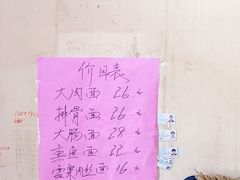 价目表
大肉面 26.元
排骨面 26.元
大肠面 28.元
重鱼面 22.元
雪菜肉丝面 16.元